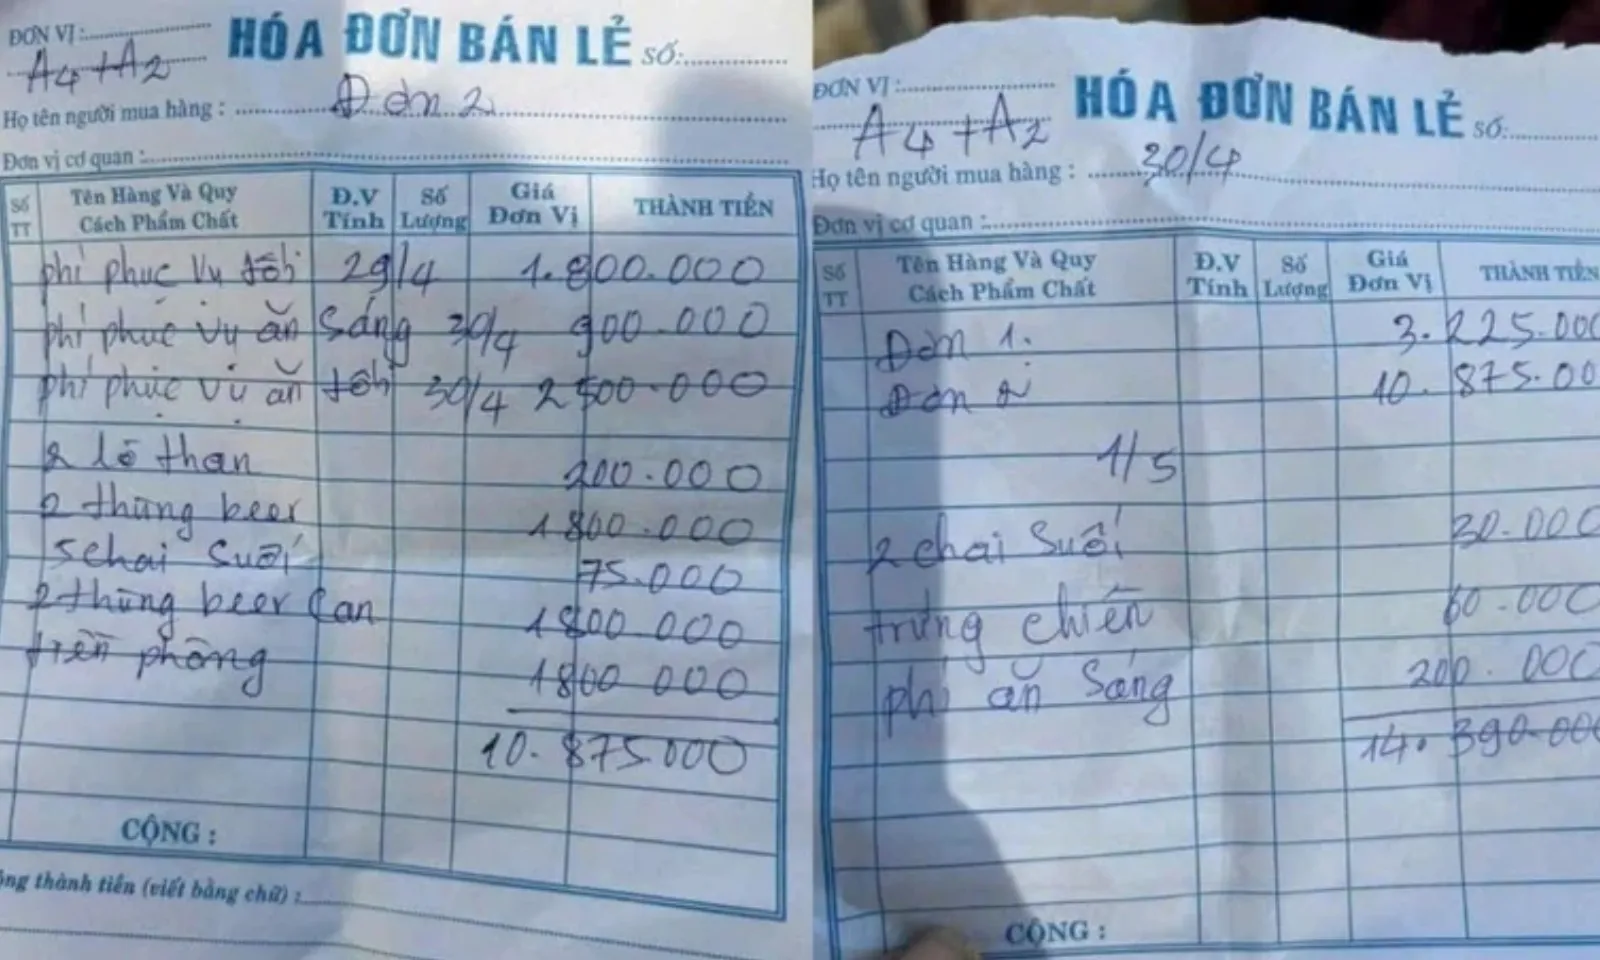 ĐƠN VỊ :
A4+A2
HÓA ĐƠN BÁN LẺ SỐ:
Họ tên người mua hàng : Đơn 2
Đơn vị cơ quan :
Số TT Tên Hàng Và Quy Cách Phẩm Chất Đ.V Tính Số Lượng Giá Đơn Vị THÀNH TIỀN
phí phục vụ tối 29/4 1.800.000
phí phục vụ ăn sáng 30/4 900.000
phí phục vụ ăn tối 30/4 2500.000
2 lò than 200.000
2 thùng beer 1800.000
5 chai suối 75.000
2 thùng beer can 1800.000
tiền phòng 1800 000
10.875.000
CỘNG :
ộng thành tiền (viết bằng chữ) :
ĐƠN VỊ :
A4+A2
HÓA ĐƠN BÁN LẺ SỐ:
Họ tên người mua hàng : 30/4
Đơn vị cơ quan :
Số TT Tên Hàng Và Quy Cách Phẩm Chất Đ.V Tính Số Lượng Giá Đơn Vị THÀNH TIỀN
Đơn 1. 3.225.000
Đơn 2 10.875.00
1/5
2 chai suối 30.000
trứng chiên 60.000
phí ăn sáng 200.000
14.390.000
CỘNG :